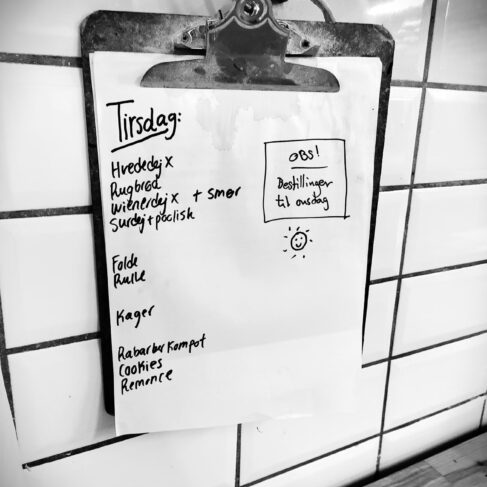 Tirsdag:
Hvededej x
Rugbrød
Wienerdej x + smør
Surdej + poolish
Folde
Rulle
Kager
Rabarber Kompot
Cookies
Remonce
OBS!
Bestillinger
til onsdag